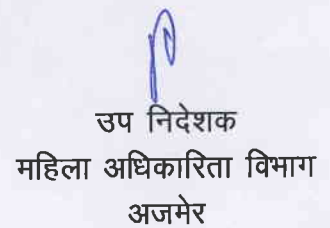 उप निदेशक
महिला अधिकारिता विभाग
अजमेर